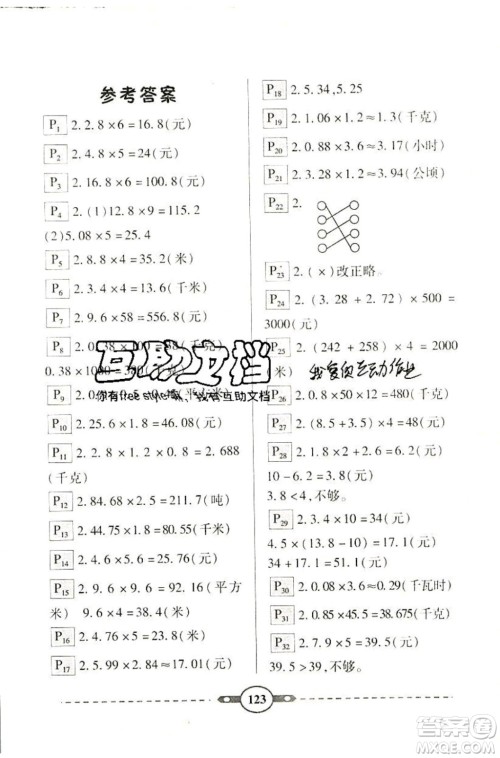 参考答案
P1 2. 2.8×6=16.8(元)
P2 2. 4.8×5=24(元)
P3 2. 16.8×6=100.8(元)
P4 2. (1)12.8×9=115.2
(2)5.08×5=25.4
P5 2. 8.8×4=35.2(米)
P6 2. 3.4×4=13.6(千米)
P7 2. 9.6×58=556.8(元)
P8
0.38×1000=380(
互助文档
你有free style嘛、我有互助文档
P10 2. 0.25×186=46.50(元)
P11 2. 2.8×1.2×0.8=2.688
(千克)
P12 2. 84.68×2.5=211.7(吨)
P13 2. 44.75×1.8=80.55(千米)
P14 2. 4.6×5=23(元)
P15 2. 9.6×0.6=5.76(平方
米) 9.6×4=38.4(米)
P16 2. 4.8×5=24(元)
P17 2. 5.99×2.9≈17.37(元)
P18 2. 5.34,5.25
P19 2. 1.06×1.2≈1.3(千克)
P20 2. 0.88×3.6≈3.17(小时)
P21 2. 3.86×1.02≈3.94(公顷)
P22 2.
P23 2. (×)改正略。
P24 2. (3.28+2.72)×500=
3000(千克)
P25 2. (242+258)×4=2000
(米)
我爱自主运动作业
P26 2. 0.8×50×12=480(千克)
P27 2. (8.5+3.5)×4=48(元)
P28 2. 1.2×3+2.6=6.2(元)
10-6.2=3.8(元)
3.8<4,不够。
P29 2. 10+3×8=34(元)
4.5×(13.8-10)=17.1(元)
34+17.1=51.1(元)
P30 2. 0.08×30=2.4(千瓦时)
P31 2. 0.85×45.5=38.675(千克)
P32 2. 9×4.3+0.8=39.5(元)
39.5>39,不够。
123